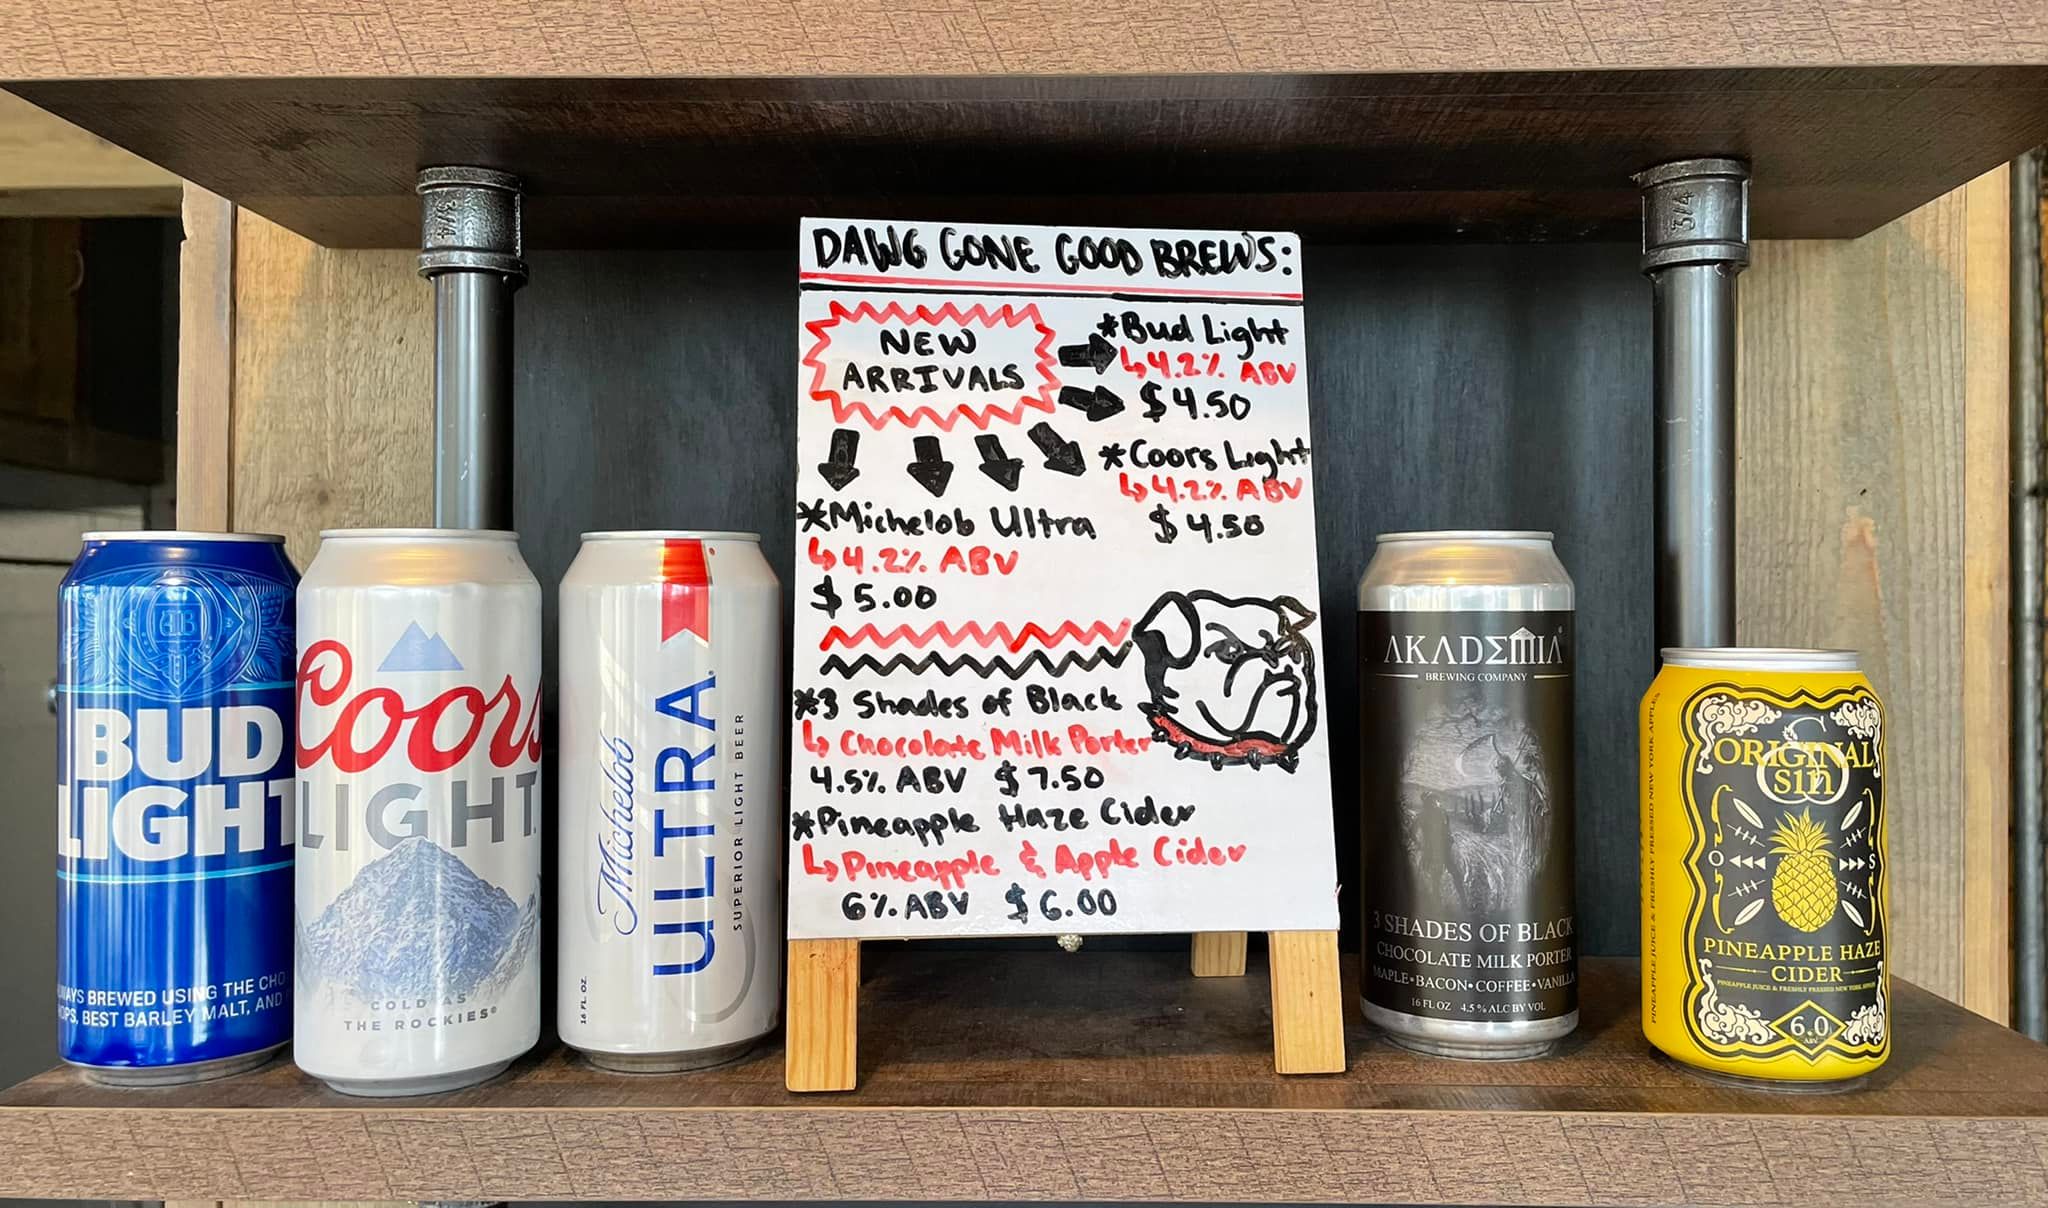 3/4
3/4
DAWG GONE GOOD BREWS:
NEW
ARRIVALS
*Bud Light
↳4.2% ABV
$4.50
*Coors Light
↳4.2% ABV
$4.50
*Michelob Ultra
↳4.2% ABV
$5.00
*3 Shades of Black
↳Chocolate Milk Porter
4.5% ABV $7.50
*Pineapple Haze Cider
↳Pineapple & Apple Cider
6% ABV $6.00
BUD
LIGHT
WAYS BREWED USING THE CHO
OPS, BEST BARLEY MALT, AND
Coors
LIGHT
COLD AS
THE ROCKIES®
Michelob
ULTRA
SUPERIOR LIGHT BEER
16 FL. OZ.
AKADEMIA®
BREWING COMPANY
3 SHADES OF BLACK
CHOCOLATE MILK PORTER
MAPLE•BACON•COFFEE•VANILLA
16 FL OZ 4.5% ALC BY VOL
ORIGINAL
sin
O S
PINEAPPLE HAZE
CIDER
PINEAPPLE JUICE & FRESHLY PRESSED NEW YORK APPLES
6.0
ABV
PINEAPPLE JUICE & FRESHLY PRESSED NEW YORK APPLES